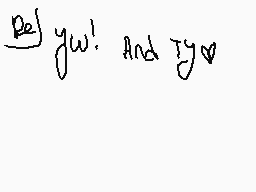 Re) yw! And Ty♥